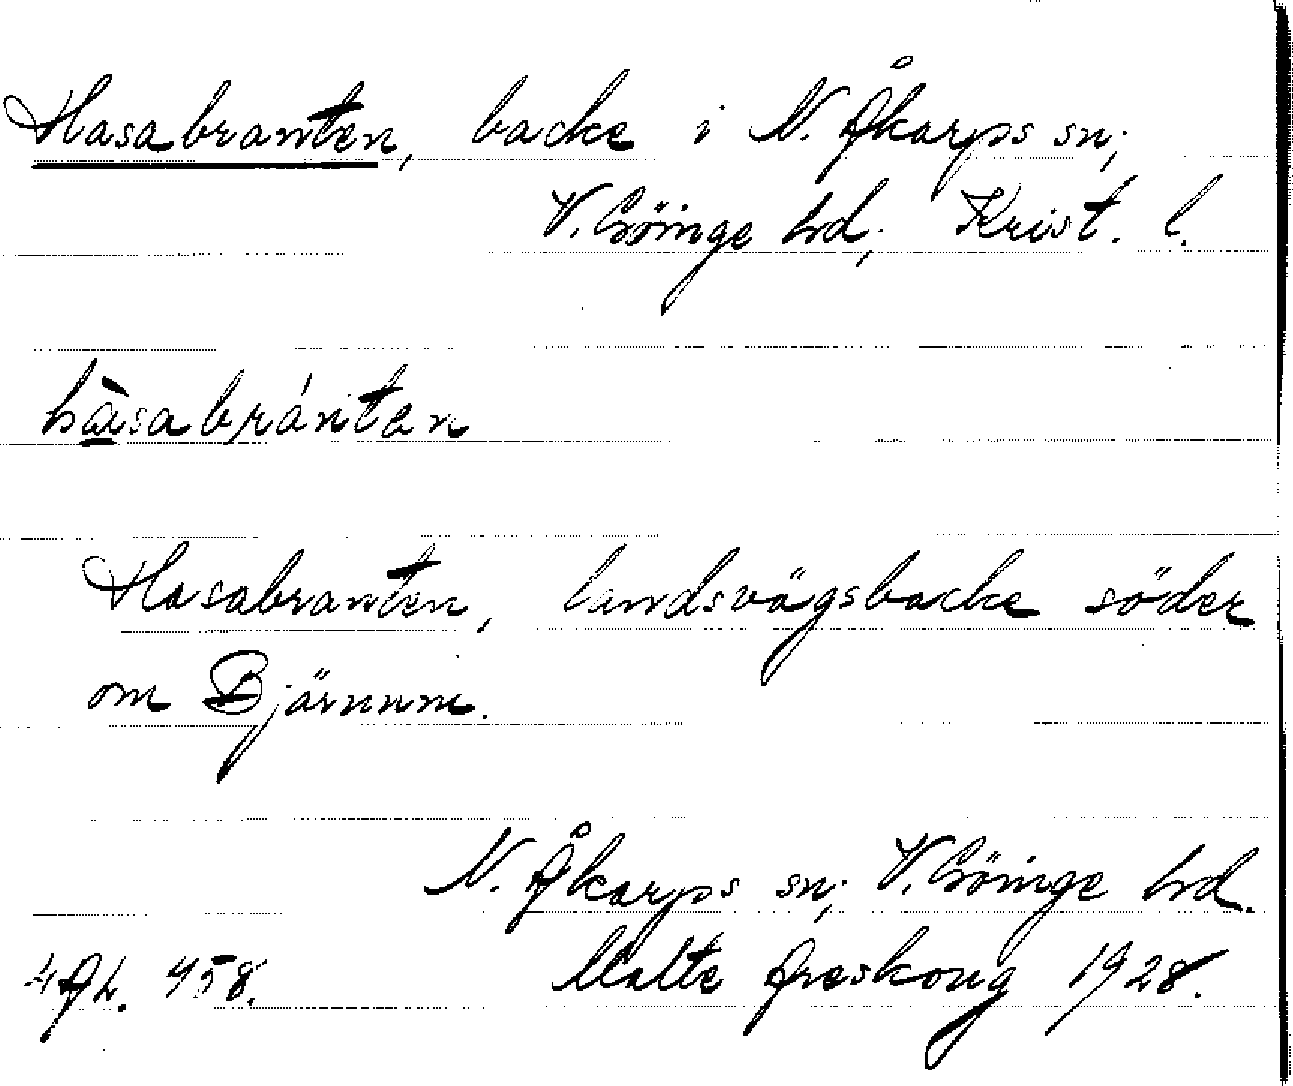 Hasabranten, backe i N. Åkarps sn;
V. Göinge hd; Krist. l.
hàsabránten
Hasabranten, landsvägsbacke söder
om Bjärnum.
N. Åkarps sn; V. Göinge hd.
Malte Areskoug 1928.